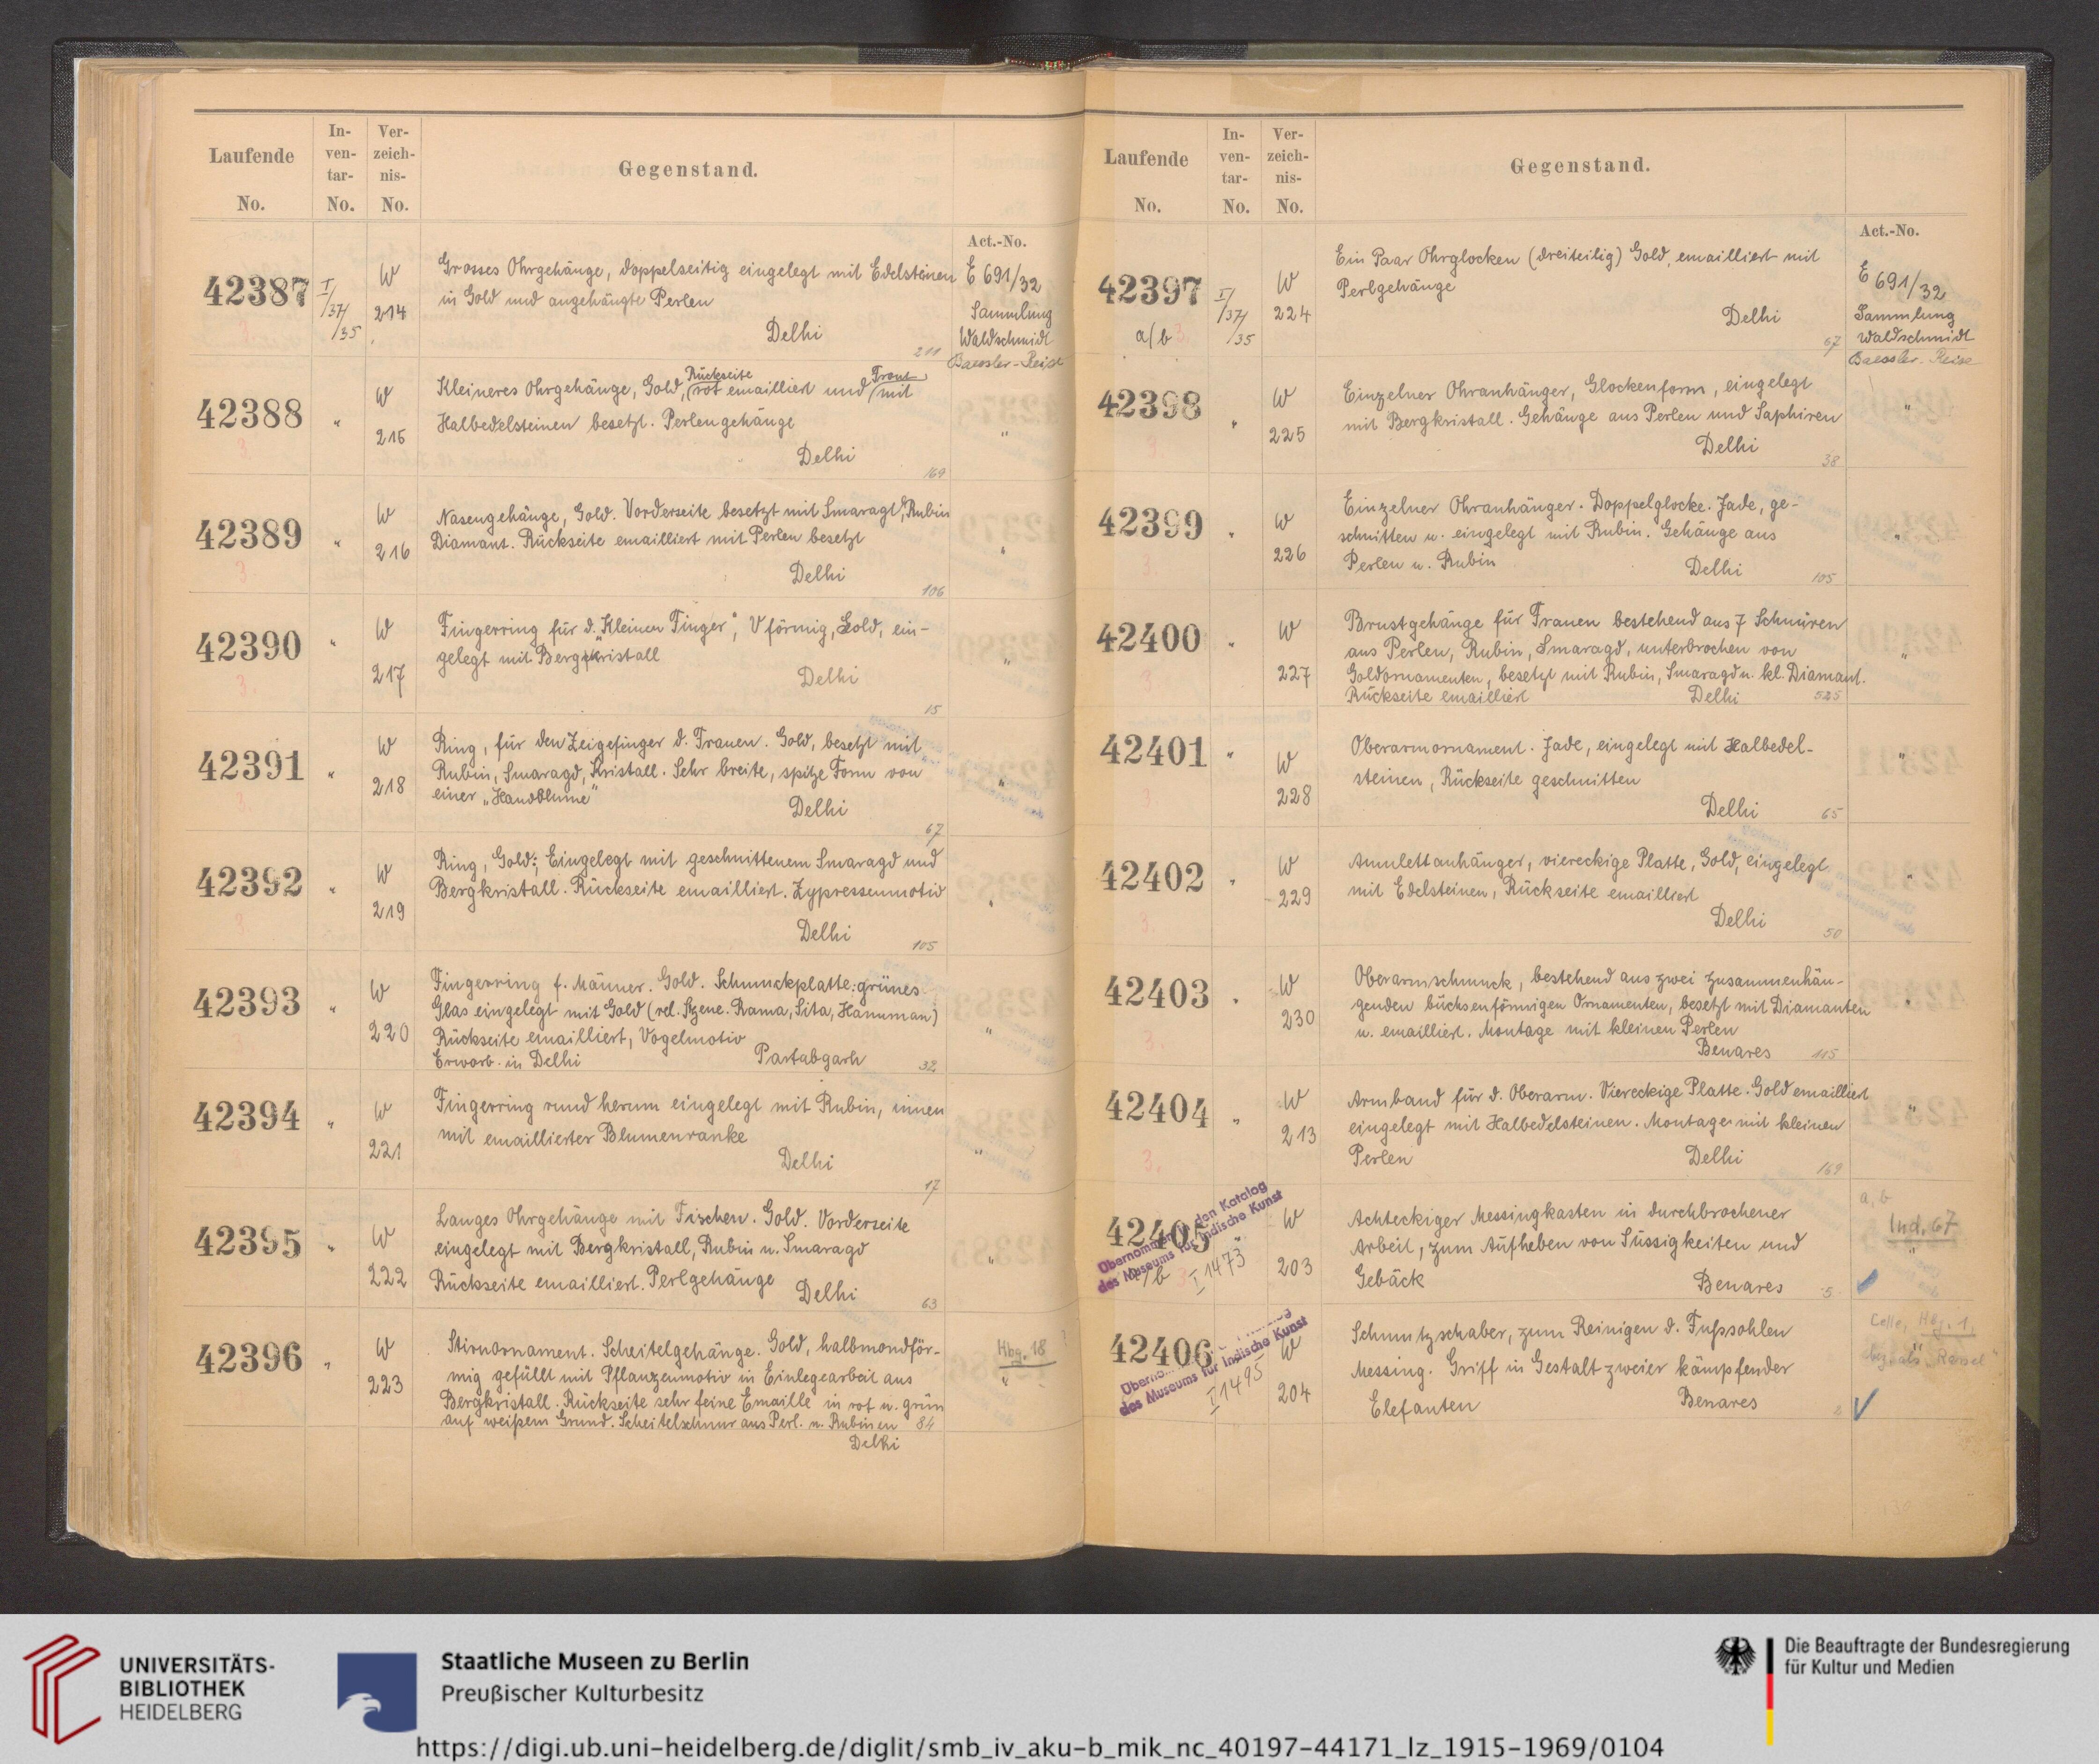 Laufende No.
In-ven-tar-No.
Ver-zeich-nis-No.
Gegenstand.
Act.-No.
42387
I/37/35
W 214
Grosses Ohrgehänge, doppelseitig eingelegt mit Edelsteinen
in Gold und angehängte Perlen
Delhi
211
E 691/32
Sammlung
Waldschmidt
Baessler-Reise
42388
"
W 215
Kleineres Ohrgehänge, Gold, Rückseite rot emailliert und Front mit
Halbedelsteinen besetzt. Perlengehänge
Delhi
169
"
42389
"
W 216
Nasengehänge, Gold. Vorderseite besetzt mit Smaragd, Rubin
Diamant. Rückseite emailliert mit Perlen besetzt
Delhi
106
"
42390
"
W 217
Fingerring für d. "Kleinen Finger", V förmig, Gold, ein-
gelegt mit Bergkristall
Delhi
15
"
42391
"
W 218
Ring, für den Zeigefinger d. Frauen. Gold, besetzt mit
Rubin, Smaragd, Kristall. Sehr breite, spitze Form von
einer "Handblume"
Delhi
67
"
42392
"
W 219
Ring, Gold; Eingelegt mit geschnittenem Smaragd und
Bergkristall. Rückseite emailliert. Zypressenmotiv
Delhi
105
"
42393
"
W 220
Fingerring f. Männer. Gold. Schmuckplatte: grünes
Glas eingelegt mit Gold (rel. Szene. Rama, Sita, Hanuman)
Rückseite emailliert, Vogelmotiv
Erworb. in Delhi Partabgarh
32
"
42394
"
W 221
Fingerring rund herum eingelegt mit Rubin, innen
mit emaillierter Blumenranke
Delhi
17
"
42395
"
W 222
Langes Ohrgehänge mit Fischen. Gold. Vorderseite
eingelegt mit Bergkristall, Rubin u. Smaragd
Rückseite emailliert. Perlgehänge Delhi
63
"
42396
"
W 223
Stirnornament. Scheitelgehänge. Gold, halbmondför-
mig gefüllt mit Pflanzenmotiv in Einlegearbeit aus
Bergkristall. Rückseite sehr feine Emaille in rot u. grün
auf weißem Grund. Scheitelschnur aus Perl. u. Rubinen 84
Delhi
Hbg. 18
"
Laufende No.
In-ven-tar-No.
Ver-zeich-nis-No.
Gegenstand.
Act.-No.
42397
a/b
I/37/35
W 224
Ein Paar Ohrglocken (dreiteilig) Gold, emailliert mit
Perlgehänge
Delhi
67
E 691/32
Sammlung
Waldschmidt
Baessler-Reise
42398
"
W 225
Einzelner Ohranhänger, Glockenform, eingelegt
mit Bergkristall. Gehänge aus Perlen und Saphiren
Delhi
38
"
42399
"
W 226
Einzelner Ohranhänger. Doppelglocke. Jade, ge-
schnitten u. eingelegt mit Rubin. Gehänge aus
Perlen u. Rubin Delhi
105
"
42400
"
W 227
Brustgehänge für Frauen bestehend aus 7 Schnüren
aus Perlen, Rubin, Smaragd, unterbrochen von
Goldornamenten, besetzt mit Rubin, Smaragd u. kl. Diamant.
Rückseite emailliert Delhi
525
"
42401
"
W 228
Oberarmornament. Jade, eingelegt mit Halbedel-
steinen, Rückseite geschnitten
Delhi
65
"
42402
"
W 229
Amulettanhänger, viereckige Platte, Gold, eingelegt
mit Edelsteinen, Rückseite emailliert
Delhi
50
"
42403
"
W 230
Oberarmschmuck, bestehend aus zwei zusammenhän-
genden büchsenförmigen Ornamenten, besetzt mit Diamanten
u. emailliert. Montage mit kleinen Perlen
Benares
115
"
42404
"
W 213
Armband für d. Oberarm. Viereckige Platte. Gold emailliert
eingelegt mit Halbedelsteinen. Montage mit kleinen
Perlen Delhi
169
"
42405
a/b
"
W 203
Übernommen in den Katalog
des Museums für Indische Kunst
I 1473
Achteckiger Messingkasten in durchbrochener
Arbeit, zum Aufheben von Süssigkeiten und
Gebäck Benares
5
a, b
Ind. 67
"
42406
W 204
des Museums für Indische Kunst
I 1495
Schmutzschaber, zum Reinigen d. Fußsohlen
Messing. Griff in Gestalt zweier kämpfender
Elefanten Benares
2
Celle, Hbg. 1,
UNIVERSITÄTS-
BIBLIOTHEK
HEIDELBERG
Staatliche Museen zu Berlin
Preußischer Kulturbesitz
Die Beauftragte der Bundesregierung
für Kultur und Medien
https://digi.ub.uni-heidelberg.de/diglit/smb_iv_aku-b_mik_nc_40197-44171_lz_1915-1969/0104